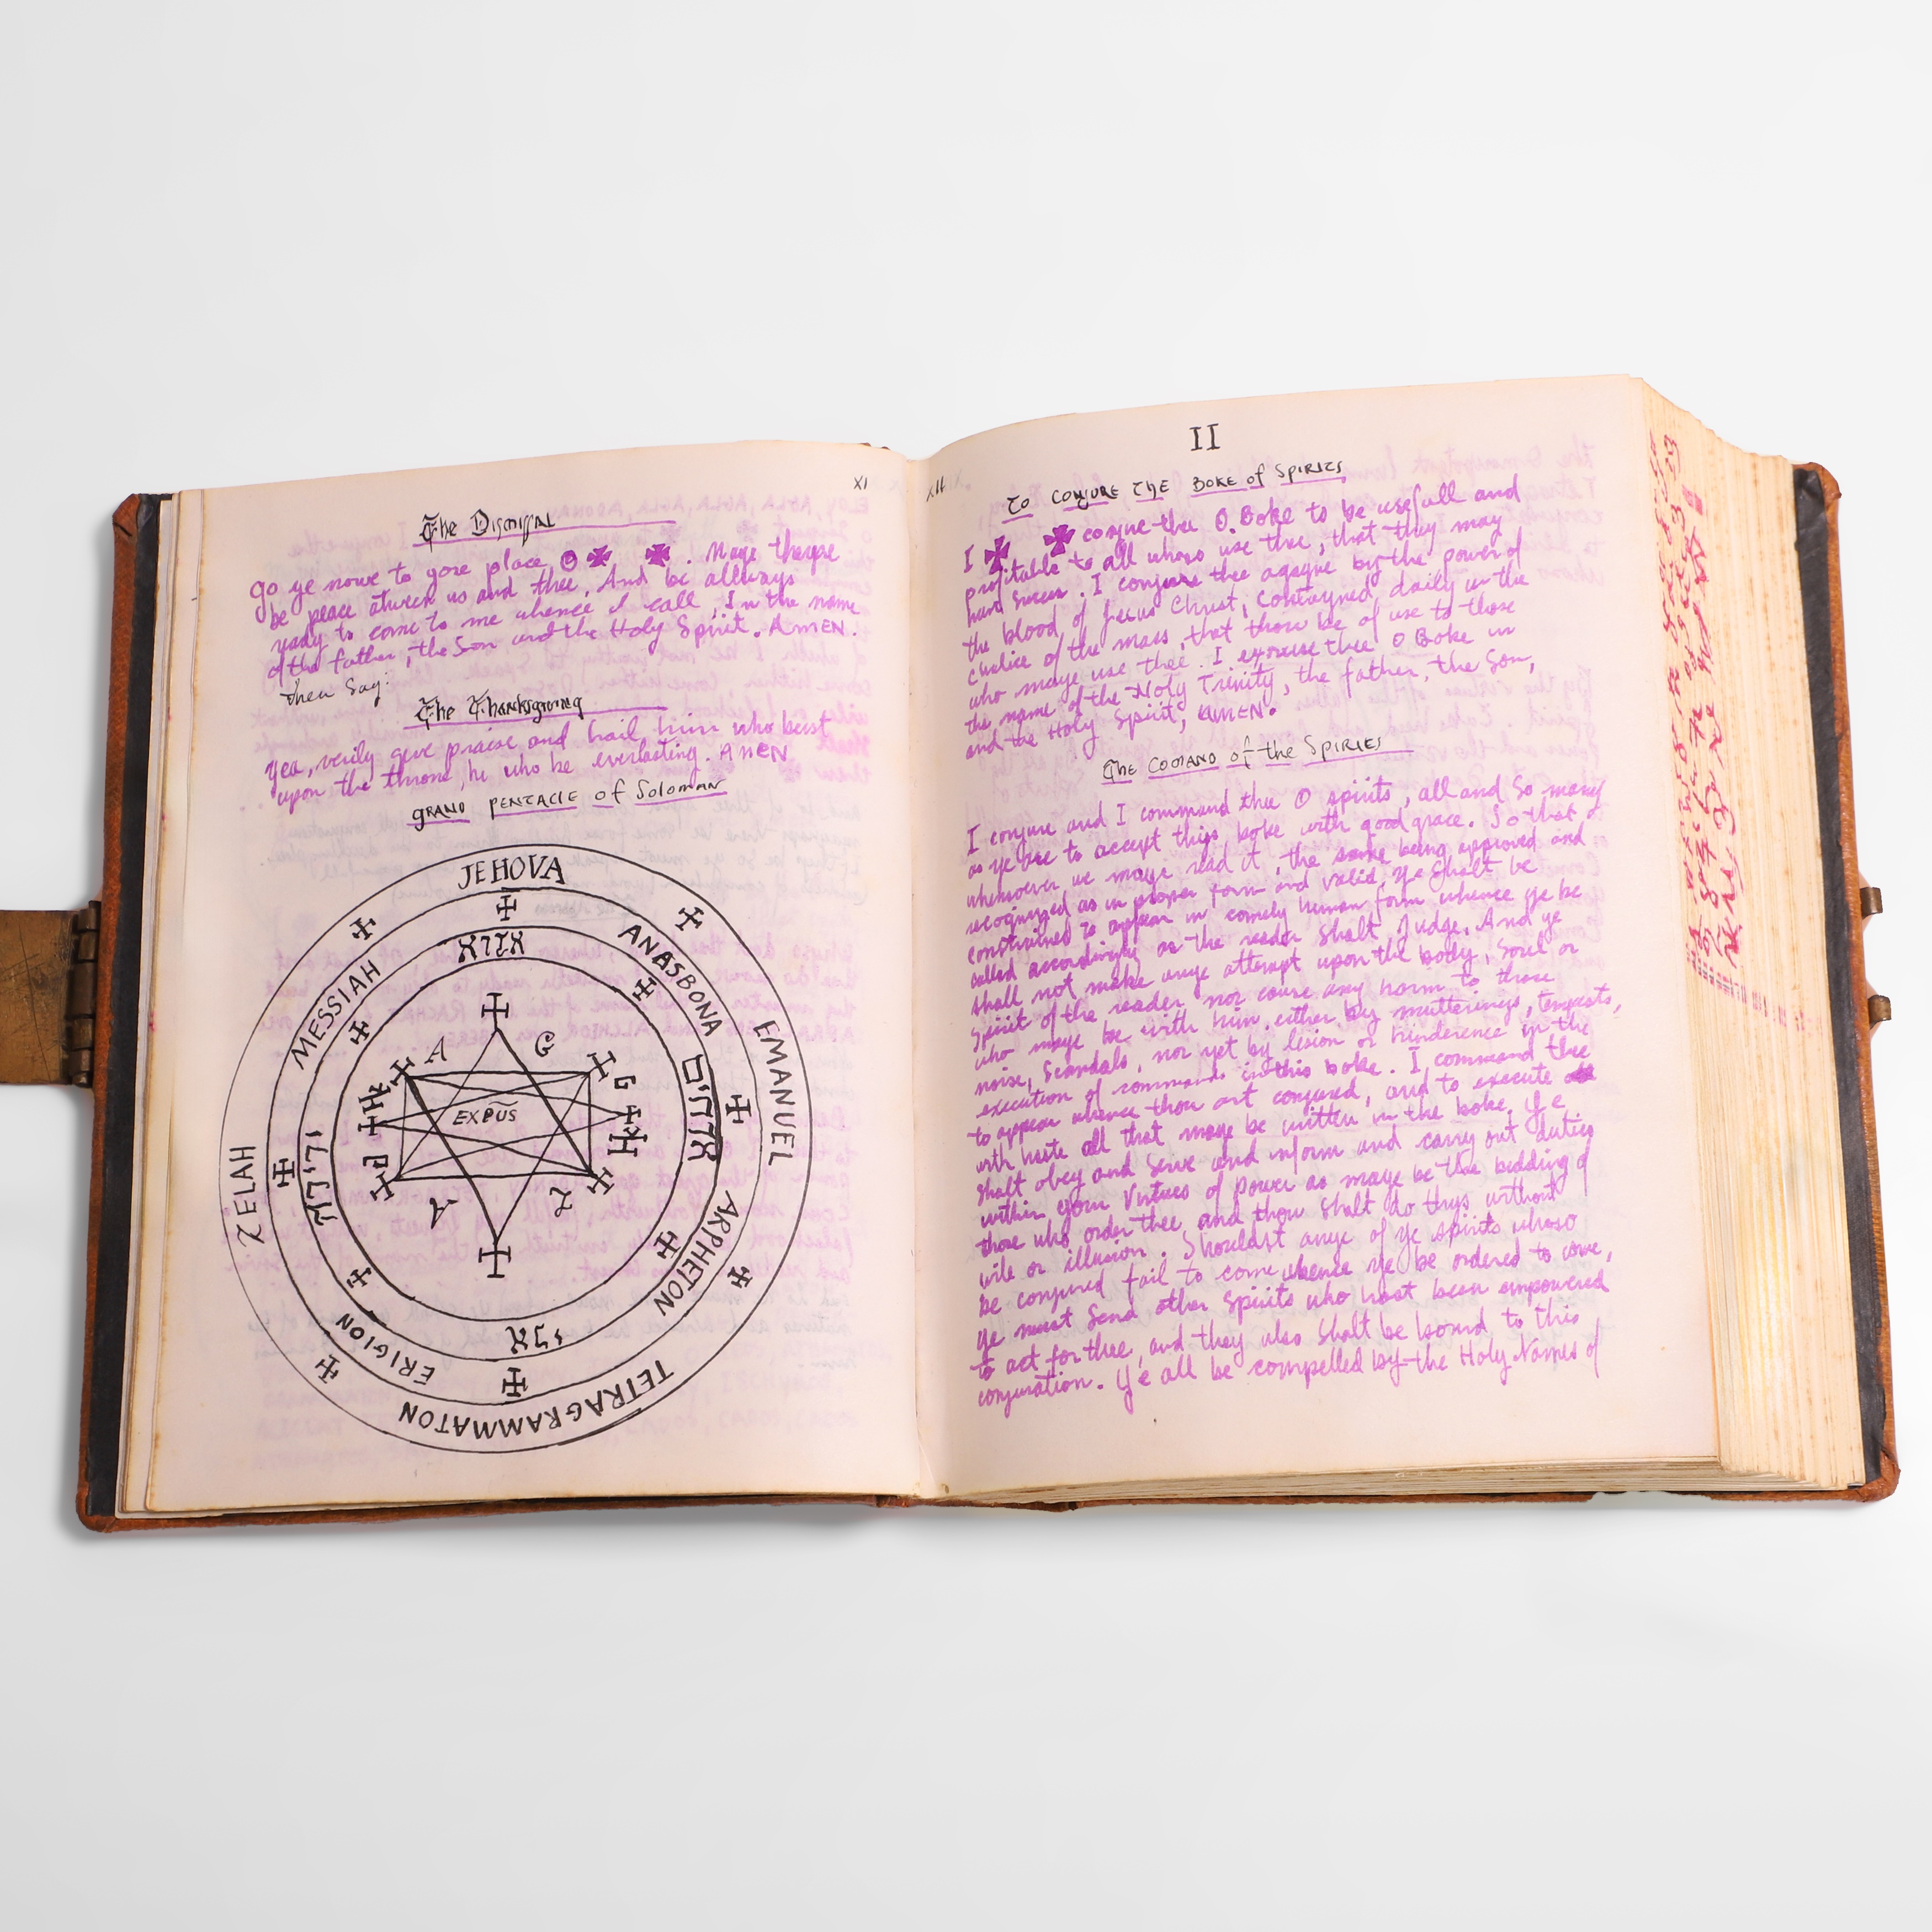 XI
The Dismissal
Go ye nowe to yore place O ✠ ✠. Maye theyre
be peace atween us and thee. And be allways
ready to come to me whence I call, In the name
of the father, the Son and the Holy Spirit. AMEN.
then Say:
The Thanksgiving
Yea, verily give praise and hail him who beist
upon the throne, he who be everlasting. AMEN
GRAND PENTACLE of Soloman
JEHOVA
EMANUEL
TETRAGRAMMATON
ZELAH
MESSIAH
ANASBONA
ARPHETON
ERIGION
אלהים
אדני
A G
G
EXPUS
XII
II
TO CONJURE THE BOKE of SPIRITS
I ✠ ✠ conjue thee O. Boke to be usefull and
profitable to all whoso use thee, that they may
have Succes. I conjure thee agayne by the power of
the blood of Jesus Christ, contayned daily in the
chalice of the mass, that thou be of use to those
who maye use thee. I exorcise thee O Boke in
the name of the Holy Trinity, the father, the Son,
and the Holy Spirit, AMEN.
The COMAND of the SPIRIES
I conjure and I command thee O spirits, all and So many
as ye are to accept thiss boke with good grace. So that
whensoever we maye read it, the same being approved and
recognized as in proper form and valid, ye Shalt be
constrained to appear in comely human form whence ye be
called accordingly as the reader Shalt Judge. And ye
shall not make anye attempt upon the body, Soul or
Spirit of the reader nor cause any harm to those
who maye be with him, either by mutterings, tempests,
noise, Scandals, nor yet by lesion or hinderence in the
execution of commands in this boke. I command thee
to appear whence thou art conjured, and to execute
with haste all that maye be written in the boke. Ye
Shalt obey and Serve and inform and carry out duties
within your Virtues of power as maye be the bidding of
those who order thee and thou Shalt do thys without
wile or illusion. Shouldast anye of ye spirits whoso
be conjured fail to come whence ye be ordered to come,
ye must Send other Spirits who hast been empowered
to act for thee, and they also Shalt be bound to this
conjuration. Ye all be compelled by the Holy Names of